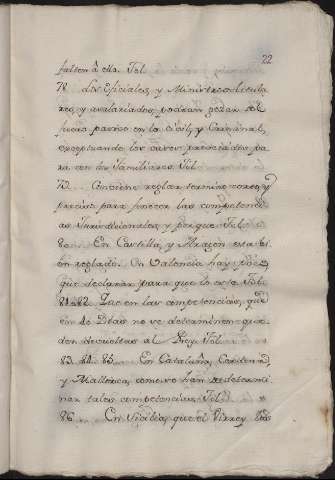 22
falten à ello. Fol.
78. Los Oficiales, y Ministros titula
res, y asalariados, podran gozar del
fuero pasivo en lo Civil, y Criminal,
exceptuando los casos prevenidos pa
ra con los Familiares. Fol.
79. Conviene reglar termino corto, y
preciso para fenecer las competenci
as Jurisdiccionales, y porque. Fol.
80. En Castilla, y Aragon esta bi
en reglado. En Valencia hay
que declarar para que lo este. Fol.
81.82. Que en las competencias, que
en de Dias no se determinen que
den devueltas al Rey. Fol.
83. 84. 85. En Cataluña, Cerdeña,
y Mallorca, como se han de determi
nar tales competencias. Fol.
86. En Sicilia, que el Virrey los